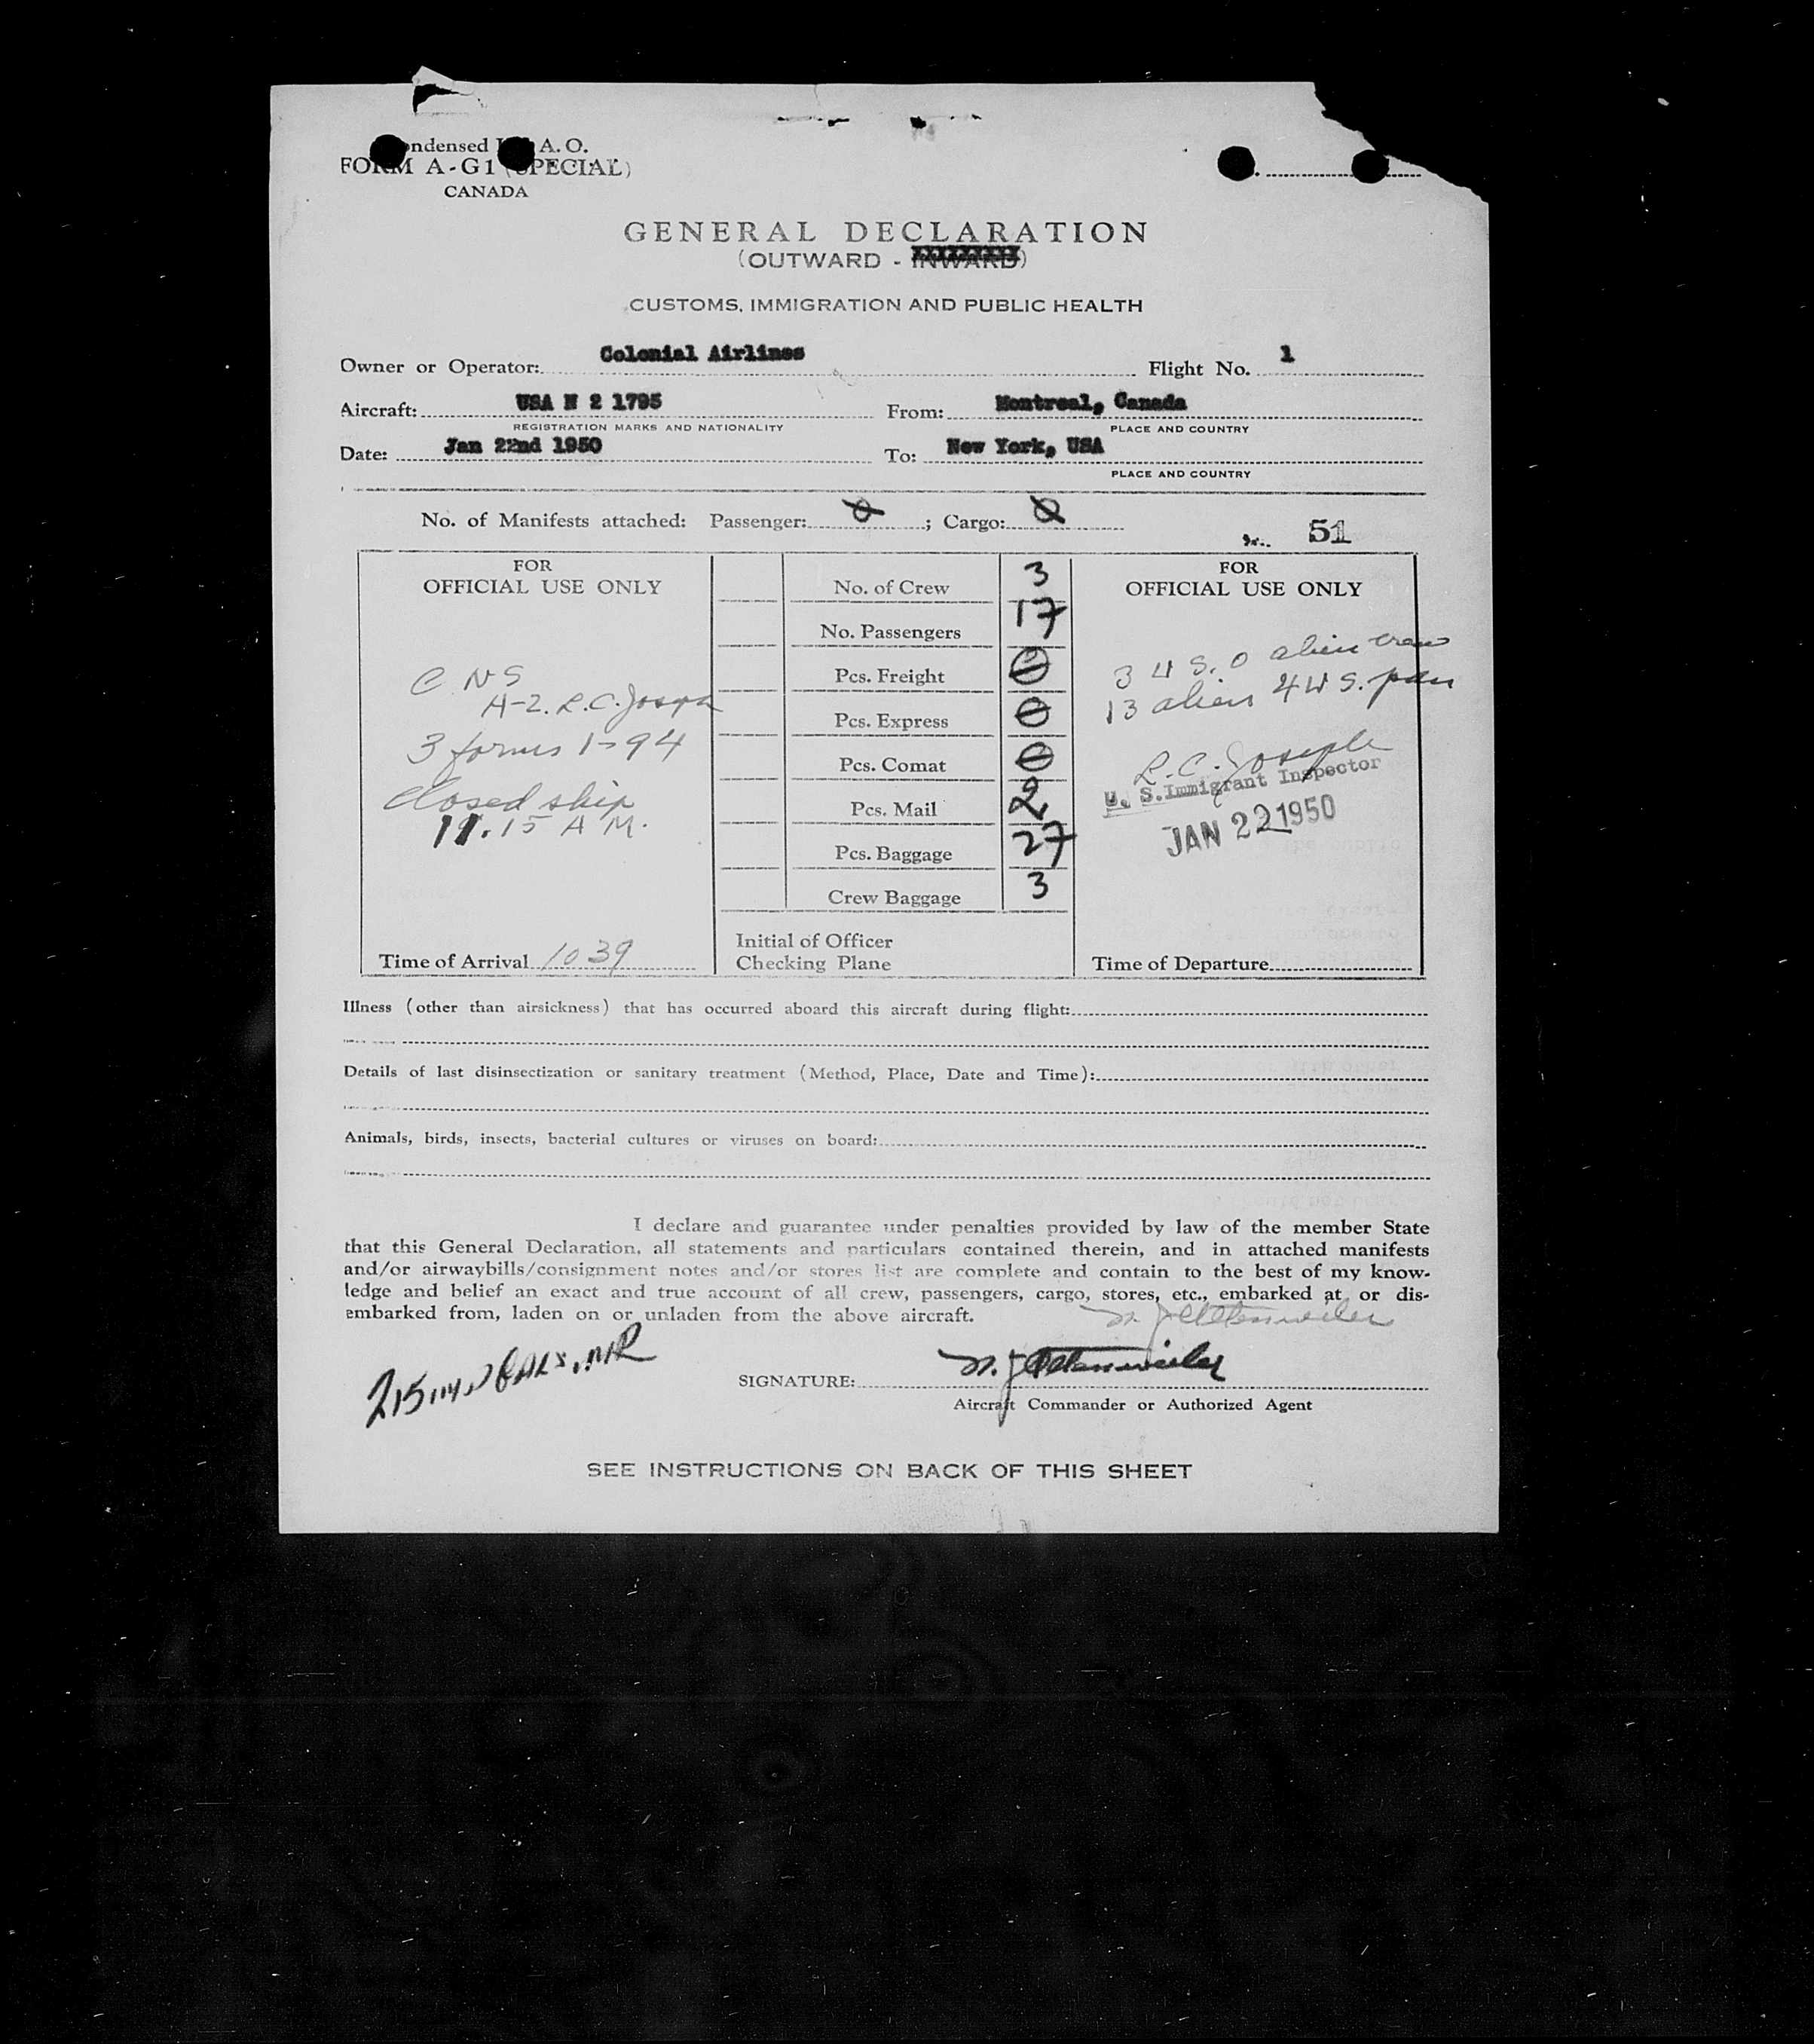 ondensed A. O.
FORM A-G1 (SPECIAL)
CANADA
GENERAL DECLARATION
(OUTWARD - INWARD)
CUSTOMS, IMMIGRATION AND PUBLIC HEALTH
Owner or Operator: Colonial Airlines Flight No. 1
Aircraft: USA N 2 1795 From: Montreal, Canada
REGISTRATION MARKS AND NATIONALITY PLACE AND COUNTRY
Date: Jan 22nd 1950 To: New York, USA
PLACE AND COUNTRY
No. of Manifests attached: Passenger: 0 ; Cargo: 0
51
FOR
OFFICIAL USE ONLY
C N S
A-2. R.C. Joseph
3 forms 1-94
Closed ship
11.15 A M.
Time of Arrival 10 39
No. of Crew 3
No. Passengers 17
Pcs. Freight 0
Pcs. Express 0
Pcs. Comat 0
Pcs. Mail 2
Pcs. Baggage 27
Crew Baggage 3
Initial of Officer
Checking Plane
FOR
OFFICIAL USE ONLY
3 U S. 0 alien crew
13 alien 4 U S. pass
R.C. Joseph
U. S. Immigrant Inspector
JAN 22 1950
Time of Departure
Illness (other than airsickness) that has occurred aboard this aircraft during flight:
Details of last disinsectization or sanitary treatment (Method, Place, Date and Time):
Animals, birds, insects, bacterial cultures or viruses on board:
I declare and guarantee under penalties provided by law of the member State
that this General Declaration, all statements and particulars contained therein, and in attached manifests
and/or airwaybills/consignment notes and/or stores list are complete and contain to the best of my know-
ledge and belief an exact and true account of all crew, passengers, cargo, stores, etc., embarked at or dis-
embarked from, laden on or unladen from the above aircraft.
SIGNATURE:
Aircraft Commander or Authorized Agent
SEE INSTRUCTIONS ON BACK OF THIS SHEET